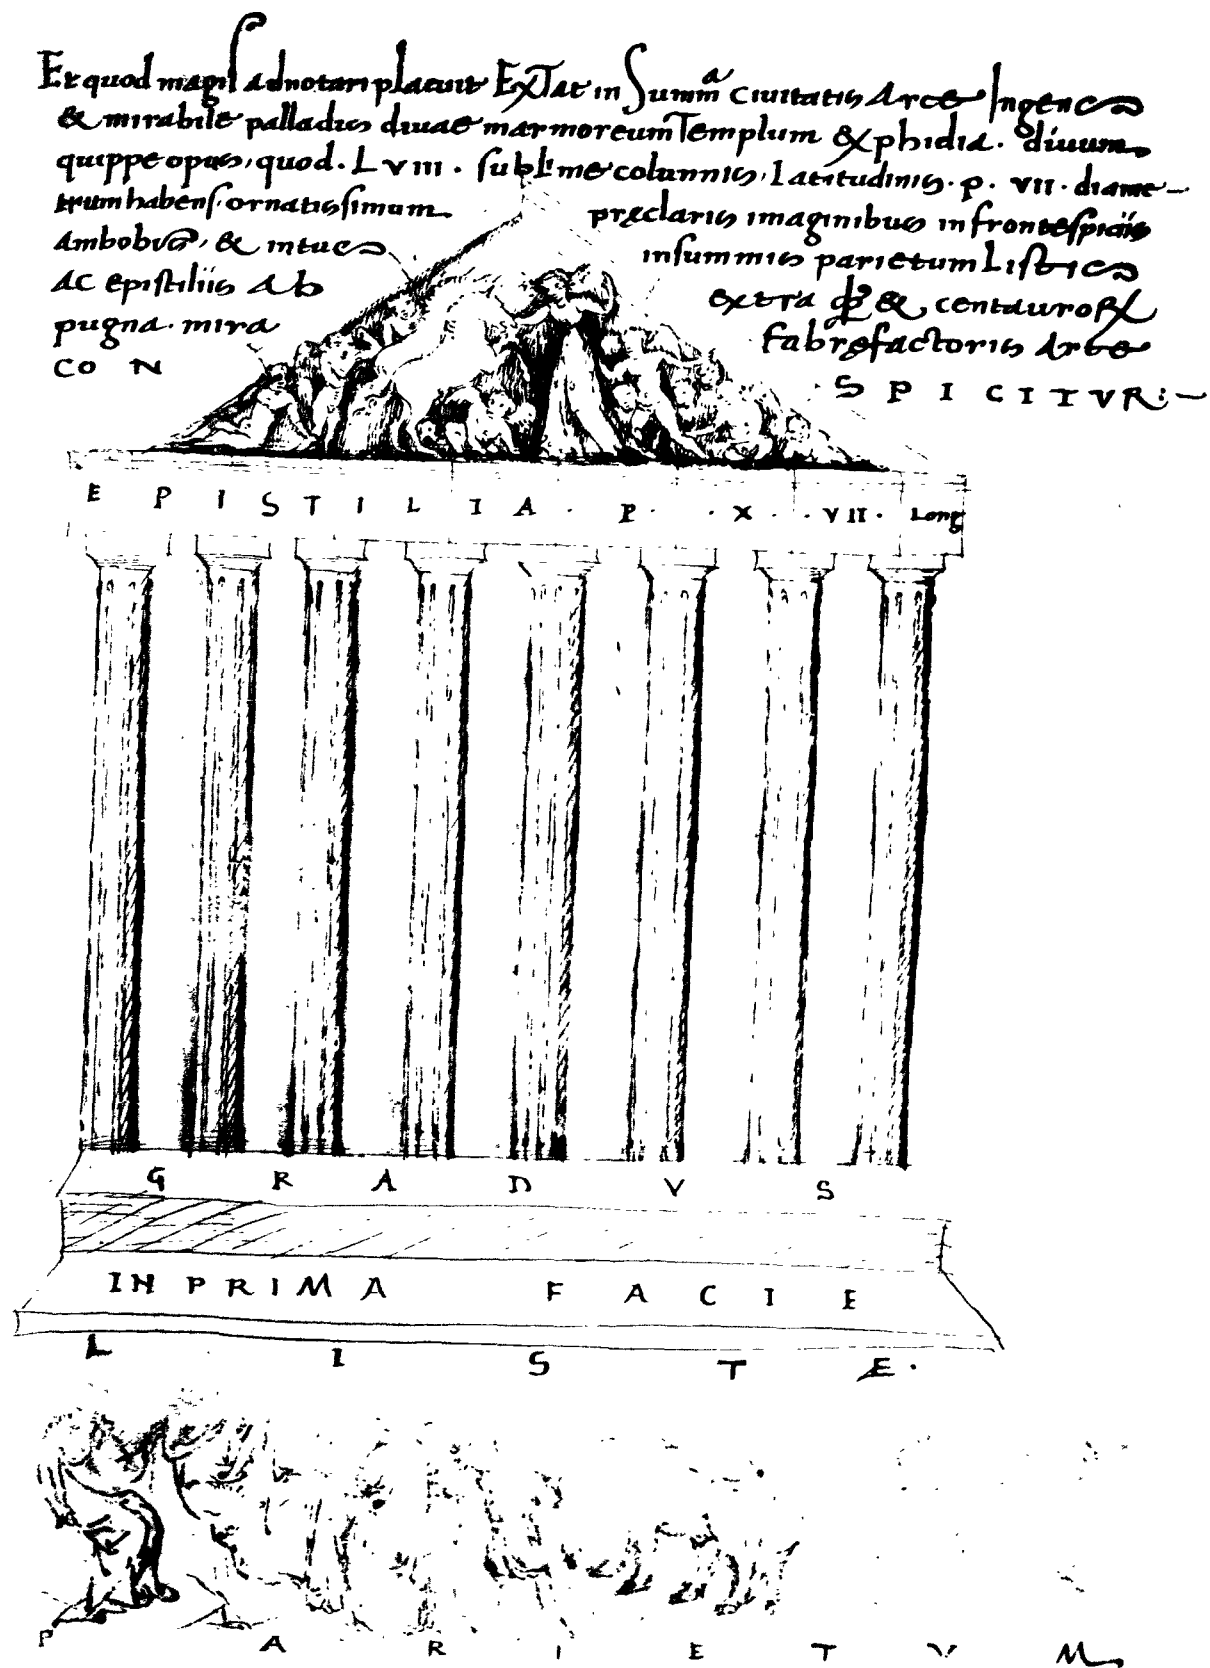 Et quod magis adnotari placuit Extat in Summa civitatis Arce Ingens
& mirabile palladis divae marmoreum Templum ex phidia. divum
quippe opus, quod. LVIII. sublime columnis, latitudinis. p. VII. diame-
trum habens. ornatissimum præclaris imaginibus in frontespiciis
Ambobus, & intus in summis parietum Listis
AC epistiliis Ab extra & centaurorum
pugna. mira fabrefactoris Arte
CON SPICITVR:-
EPISTILIA. P. X. VII. Long
GRADVS
IN PRIMA FACIE
LISTÆ.
PARIETVM